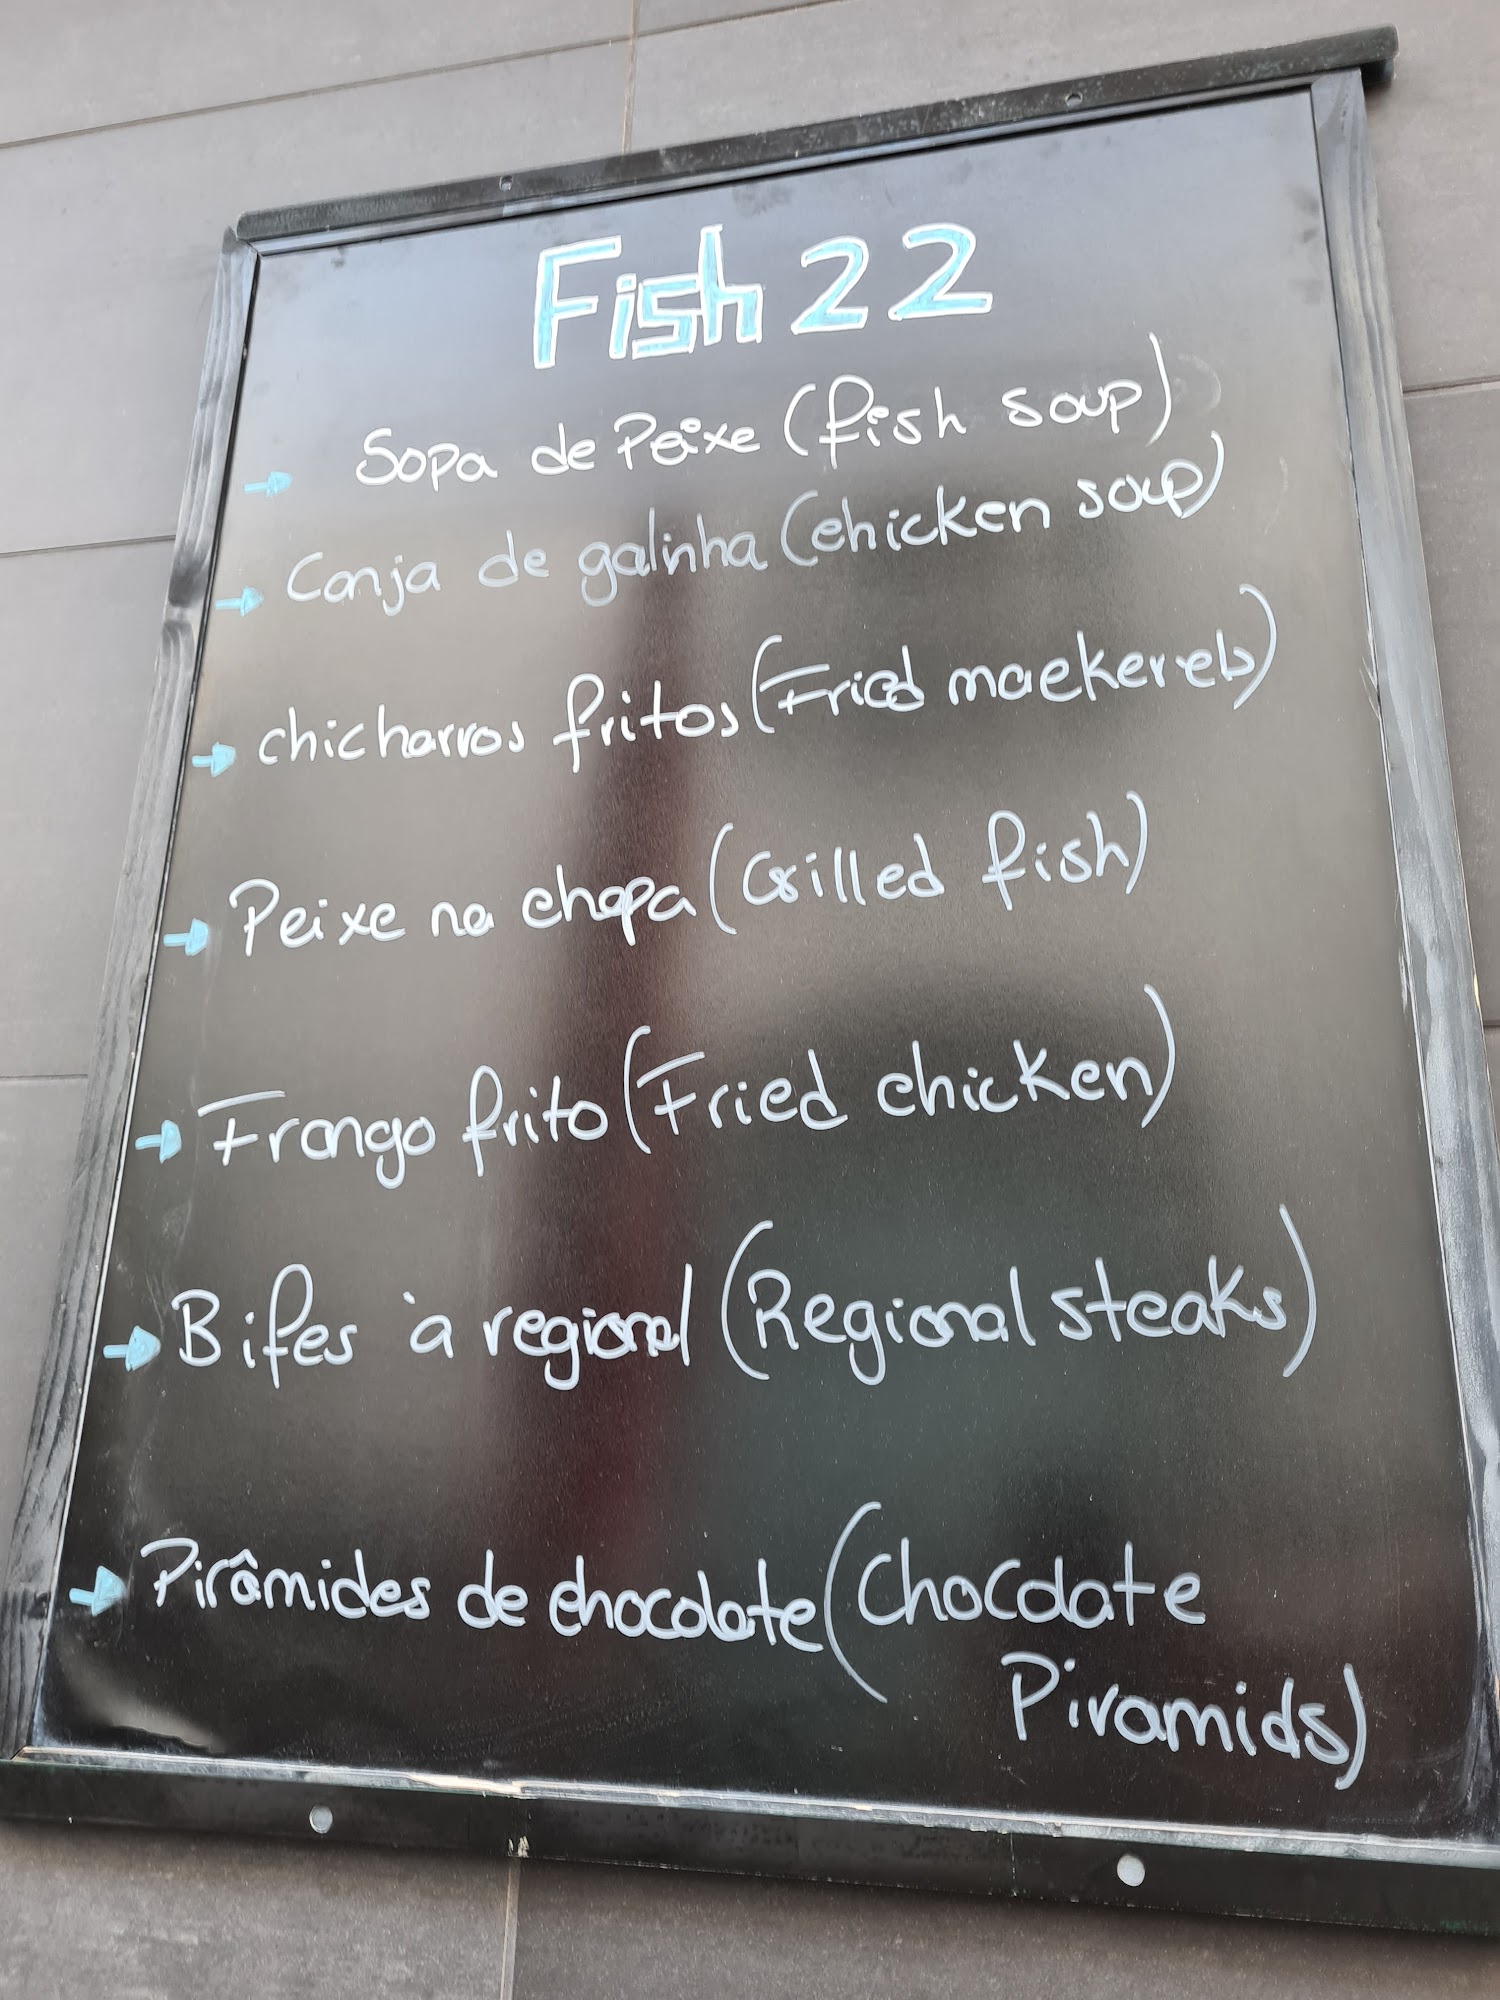 Fish 22
Sopa de Peixe (fish soup)
Canja de galinha (chicken soup)
chicharros fritos (Fried mackerels)
Peixe na chapa (Grilled fish)
Frango frito (Fried chicken)
Bifes à regional (Regional steaks)
Pirâmides de chocolate (Chocolate
Piramids)